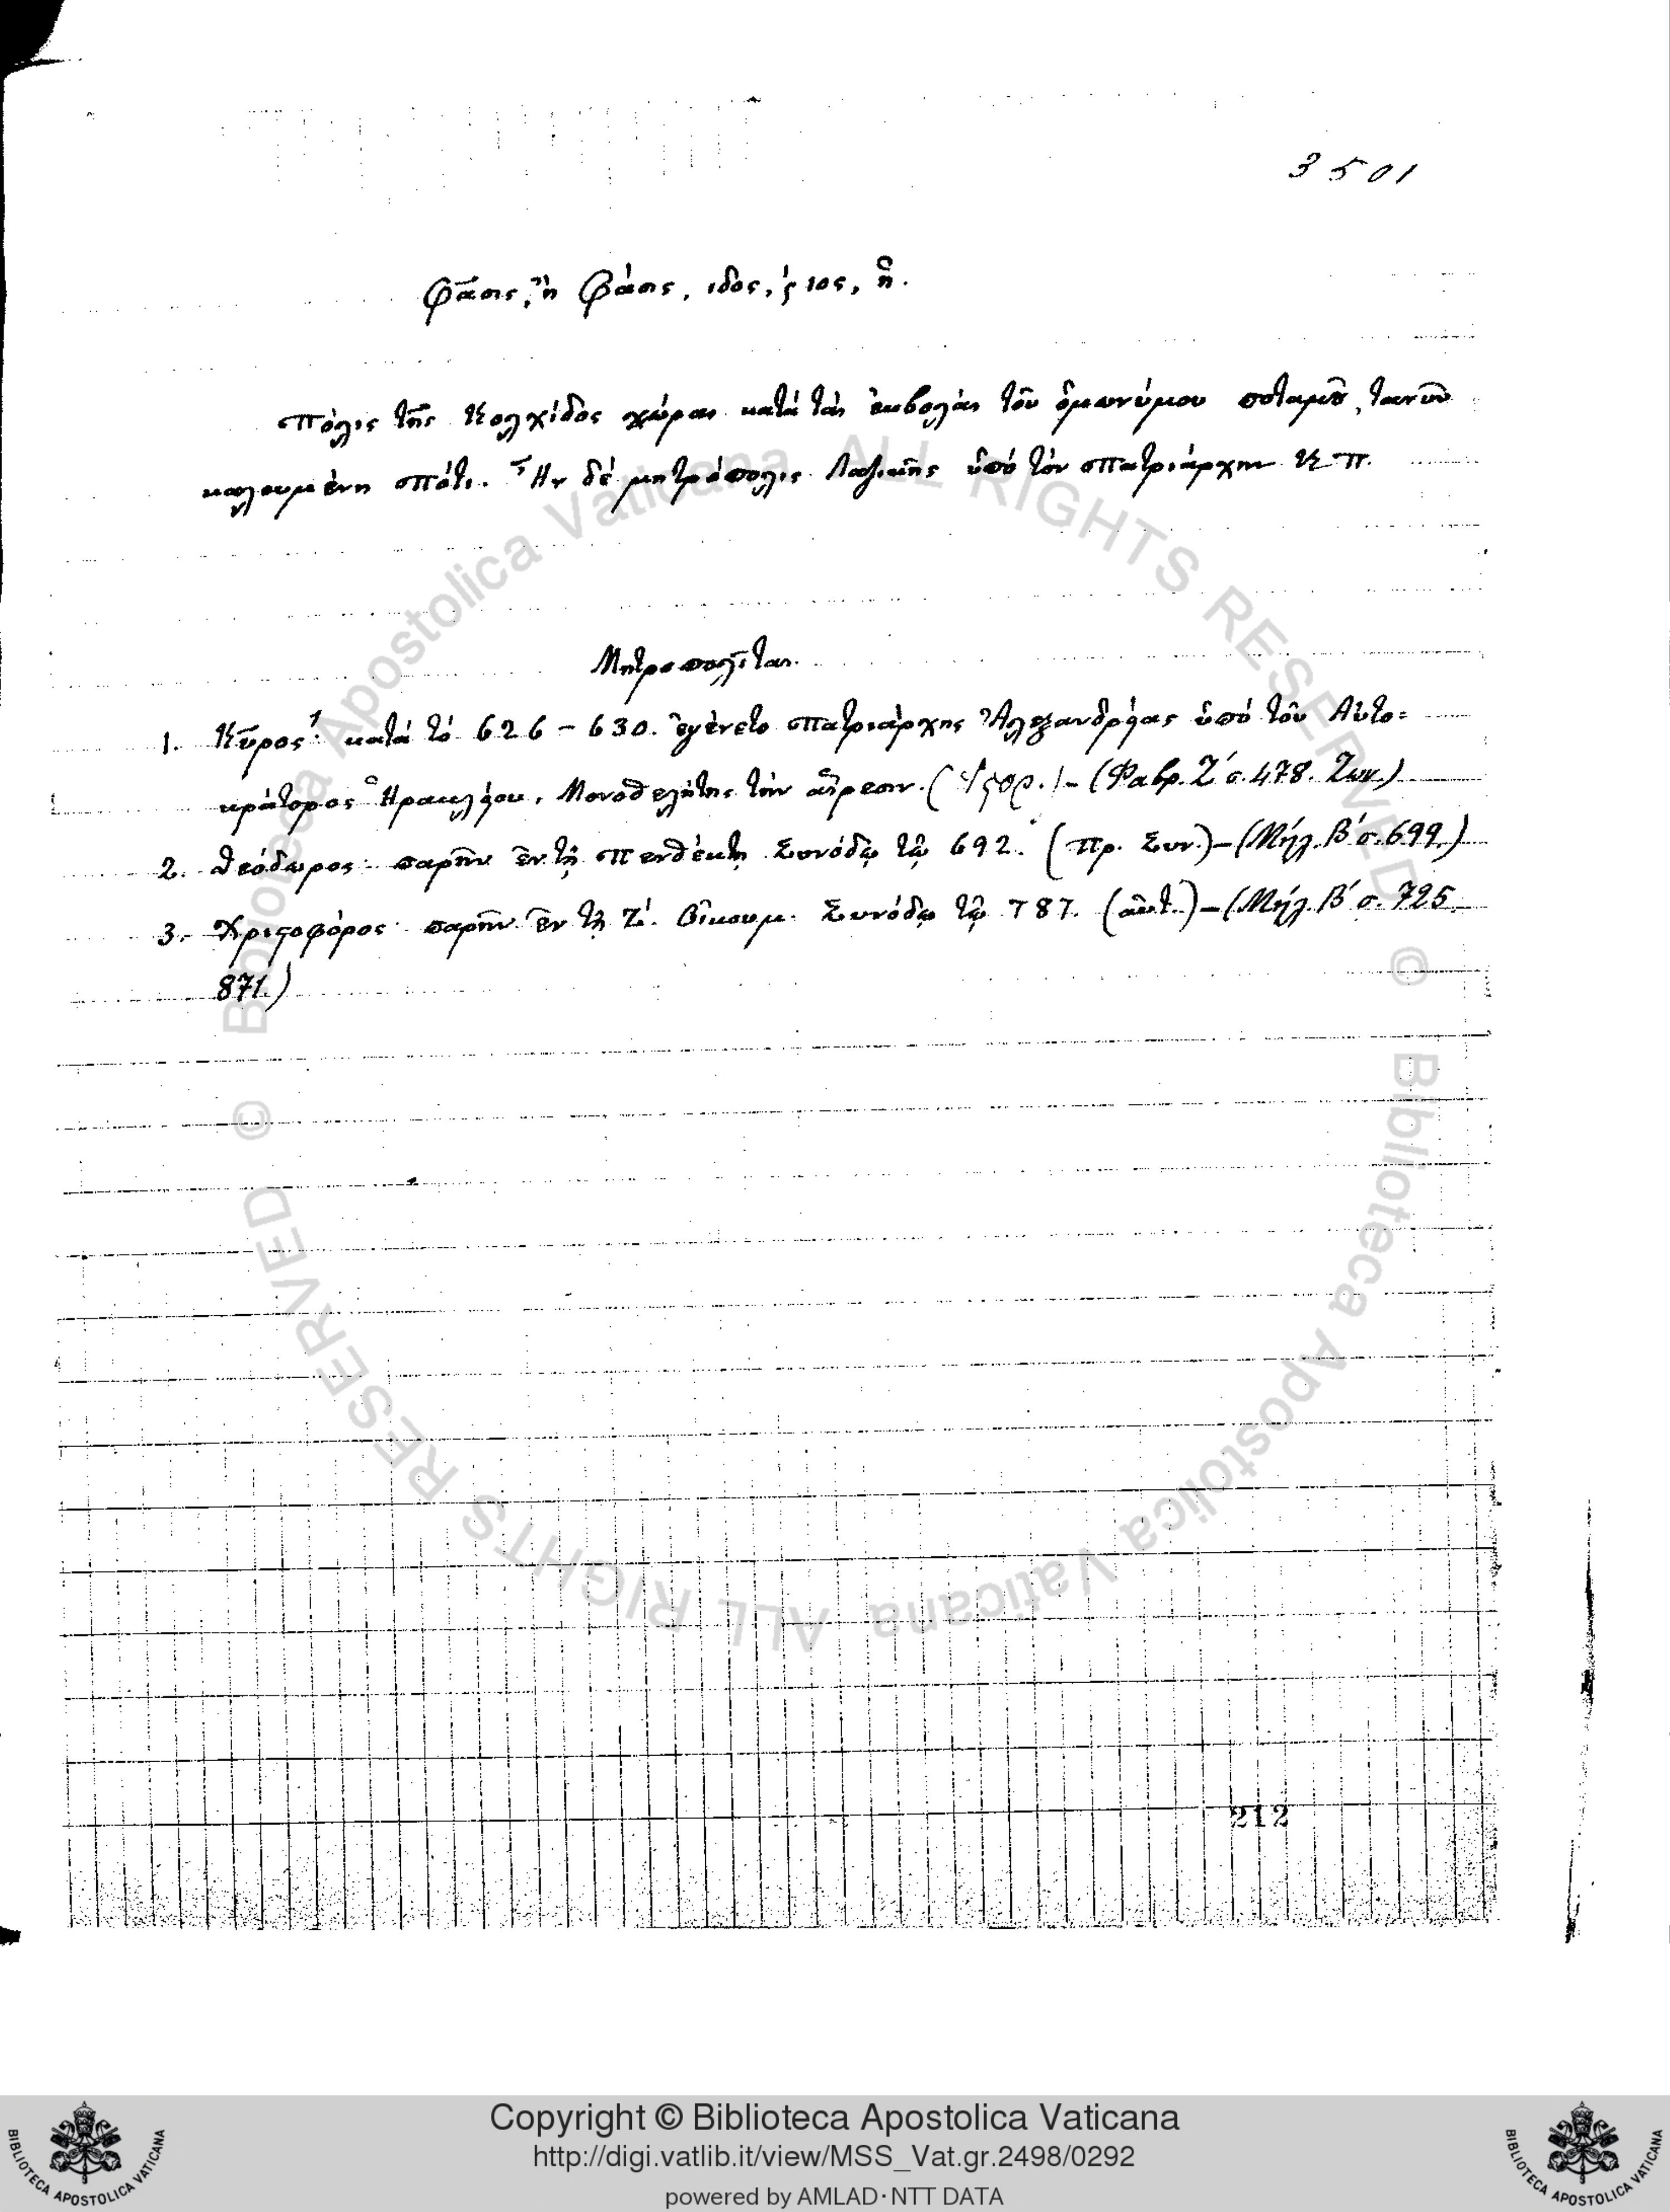 3501
Φᾶσις, ἢ Φάσις, ιδος, ἢ ιος, ἡ.
Πόλις τῆς Κολχίδος χώρας κατὰ τὰς ἐκβολὰς τοῦ ὁμωνύμου ποταμοῦ, τανῦν
καλουμένη Πότι. Ἦν δὲ μητρόπολις Λαζικῆς ὑπὸ τὸν πατριάρχην Κπ.
Μητροπολῖται.
1. Κῦρος· κατὰ τὸ 626-630. ἐγένετο πατριάρχης Ἀλεξανδρείας ὑπὸ τοῦ Αὐτο=
κράτορος Ἡρακλείου, Μονοθελήτης τὴν αἵρεσιν. (Ἱστορ.)-(Φαβρ. Ζ΄ σ. 478. Ζων.)
2. Θεόδωρος· παρῆν ἐν τῇ Πενθέκτῃ Συνόδῳ τῷ 692. (Πρ. Συν.)-(Μήλ. Β΄ σ. 699.)
3. Χριστοφόρος· παρῆν ἐν τῇ Ζ΄. Οἰκουμ. Συνόδῳ τῷ 787. (αὐτ.)-(Μήλ. Β΄ σ. 725.
871.)
212
© Biblioteca Apostolica Vaticana ALL RIGHTS RESERVED
© Biblioteca Apostolica Vaticana ALL RIGHTS RESERVED
Copyright © Biblioteca Apostolica Vaticana
http://digi.vatlib.it/view/MSS_Vat.gr.2498/0292
powered by AMLAD·NTT DATA
BIBLIOTECA APOSTOLICA VATICANA
BIBLIOTECA APOSTOLICA VATICANA